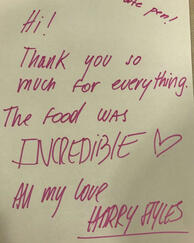 pen!
Hi!
Thank you so
much for everything.
The food was
INCREDIBLE ♡
All my love
HARRY STYLES